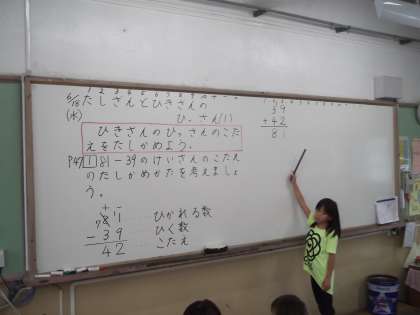 たしさんとひきさんの
(水)
ひっさん(1)
ひきさんのひっさんのこた
えをたしかめよう。
P47 1 81-39のけいさんのこたえ
のたしかめかたを考えましょ
う。
81 ひかれる数
-39 ひく数
42 こたえ
39
+42
81